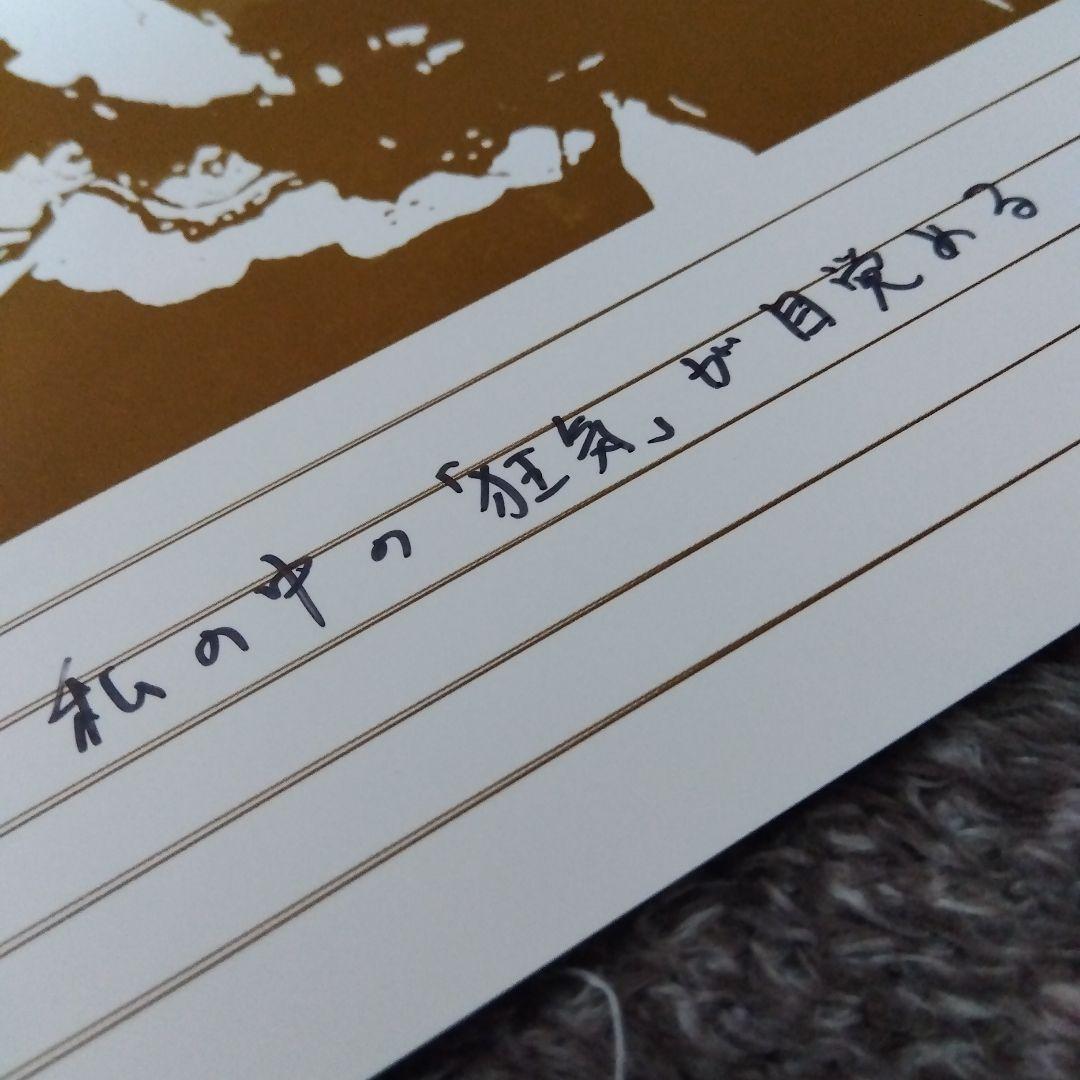 私の中の「狂気」が目覚める